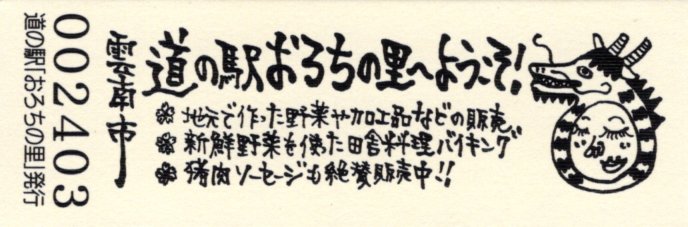 002403
道の駅「おろちの里」発行
雲南市
道の駅おろちの里へようこそ!
地元で作った野菜や加工品などの販売
新鮮野菜を使った田舎料理バイキング
猪肉ソーセージも絶賛販売中!!